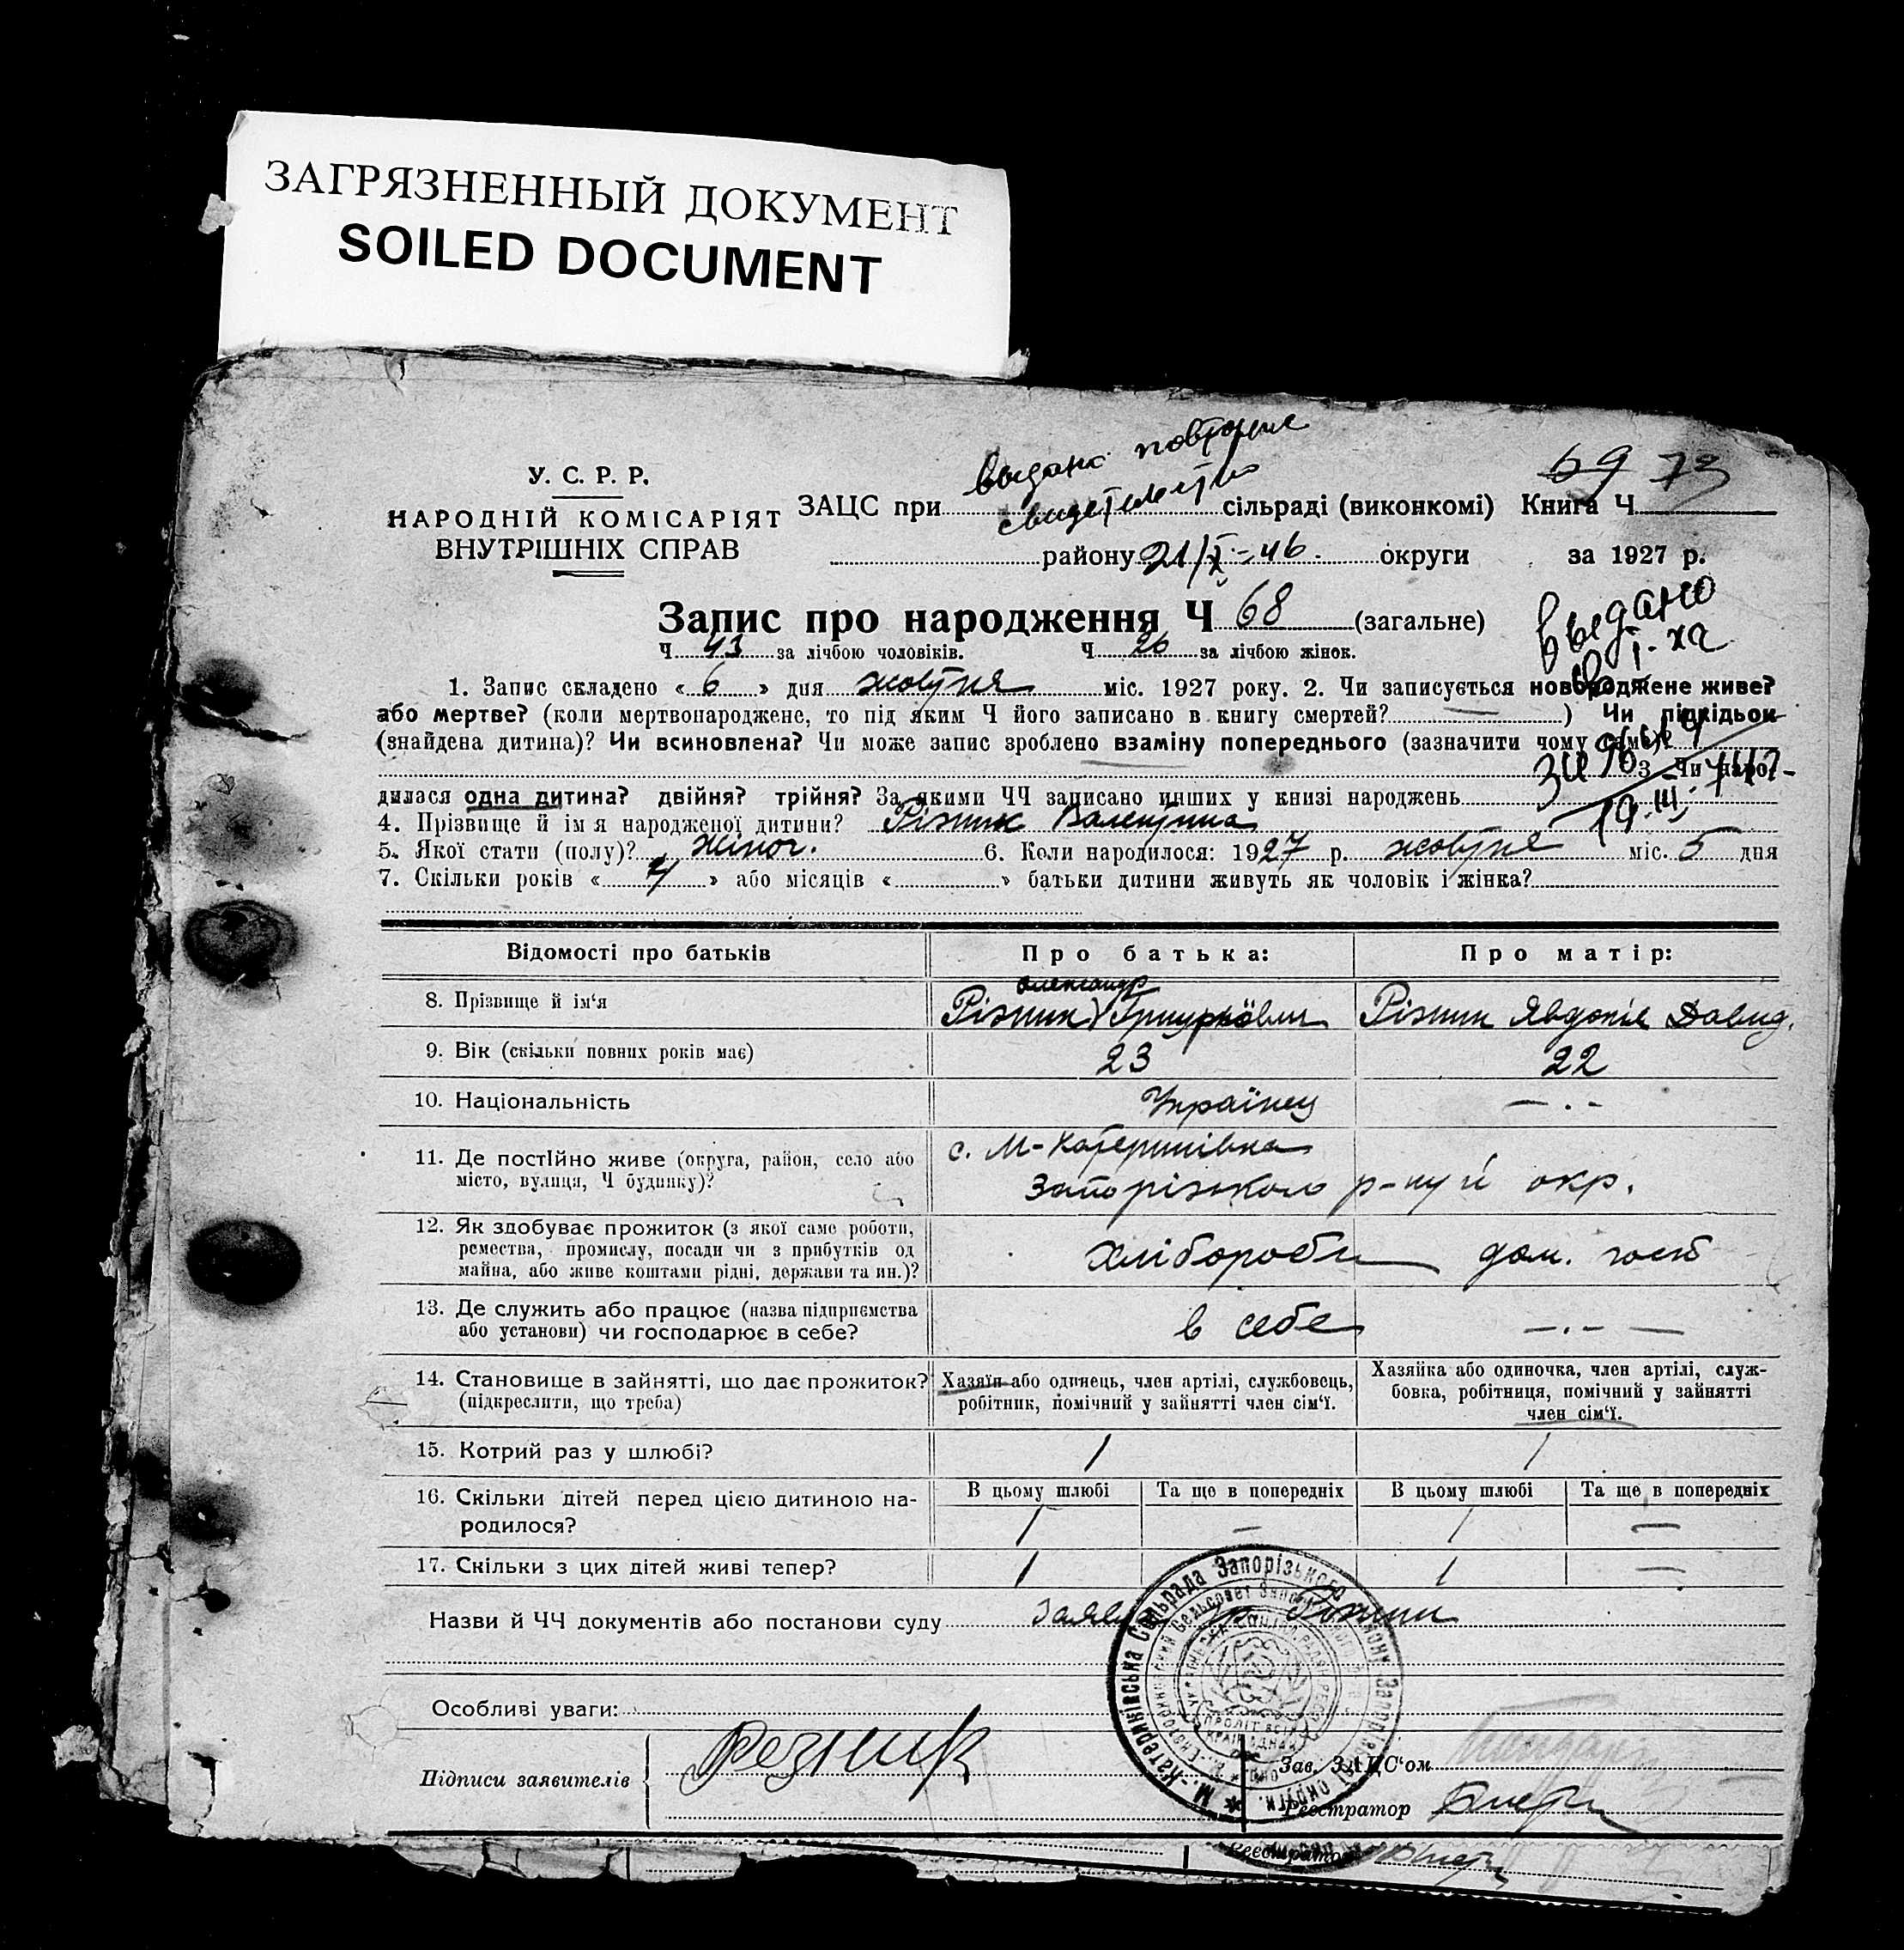 ЗАГРЯЗНЕННЫЙ ДОКУМЕНТ
SOILED DOCUMENT
выдано повторне
У. С. Р. Р.
69 73
свидетельство
НАРОДНІЙ КОМІСАРІЯТ ЗАЦС при сільраді (виконкомі) Книга Ч
ВНУТРІШНІХ СПРАВ
району 21/X-46. округи за 1927 р.
Запис про народження Ч 68 (загальне)
выдано
Ч 43 за лічбою чоловіків. Ч 26 за лічбою жінок.
1. Запис складено « 6 » дня жовтня міс. 1927 року. 2. Чи записується новороджене живе?
або мертве? (коли мертвонароджене, то під яким Ч його записано в книгу смертей? ) Чи підкідьок
(знайдена дитина)? Чи всиновлена? Чи може запис зроблено взаміну попереднього (зазначити чому саме)?
3. Чи наро-
дилася одна дитина? двійня? трійня? За якими ЧЧ записано инших у книзі народжень
4. Прізвище й ім я народженої дитини? Різник Валентина
5. Якої стати (полу)? жіноч. 6. Коли народилося: 1927 р. жовтня міс. 5 дня
7. Скільки років « 4 » або місяців « » батьки дитини живуть як чоловік і жінка?
Відомості про батьків Про батька: Про матір:
Олександр
8. Прізвище й ім'я Різник Різник Явдокія Давид.
9. Вік (скільки повних років має) 23 22
10. Національність Українец —.-
11. Де постійно живе (округа, район, село або с. М-Катеринівка
місто, вулиця, Ч будинку)? Запорізького р-ну й окр.
12. Як здобуває прожиток (з якої саме роботи,
ремества, промислу, посади чи з прибутків од хлібороби дом. госп
майна, або живе коштами рідні, держави та ин.)?
13. Де служить або працює (назва підприємства
або установи) чи господарює в себе? в себе —.- —
14. Становище в зайнятті, що дає прожиток? Хазяїн або одинець, член артілі, службовець, Хазяйка або одиночка, член артілі, служ-
(підкреслити, що треба) робітник, помічний у зайнятті член сім'ї. бовка, робітниця, помічний у зайнятті
член сім'ї.
15. Котрий раз у шлюбі? 1 1
16. Скільки дітей перед цією дитиною на- В цьому шлюбі Та ще в попередніх В цьому шлюбі Та ще в попередніх
родилося? 1 — 1 —
17. Скільки з цих дітей живі тепер? 1 1 —
Назви й ЧЧ документів або постанови суду заява гр. Різник
М.-Катеринівська Сільрада Запорізького району Запорізької округи.
Особливі уваги:
Підписи заявителів Резник
Зав. ЗАЦС'ом
Реєстратор
Реєстратор